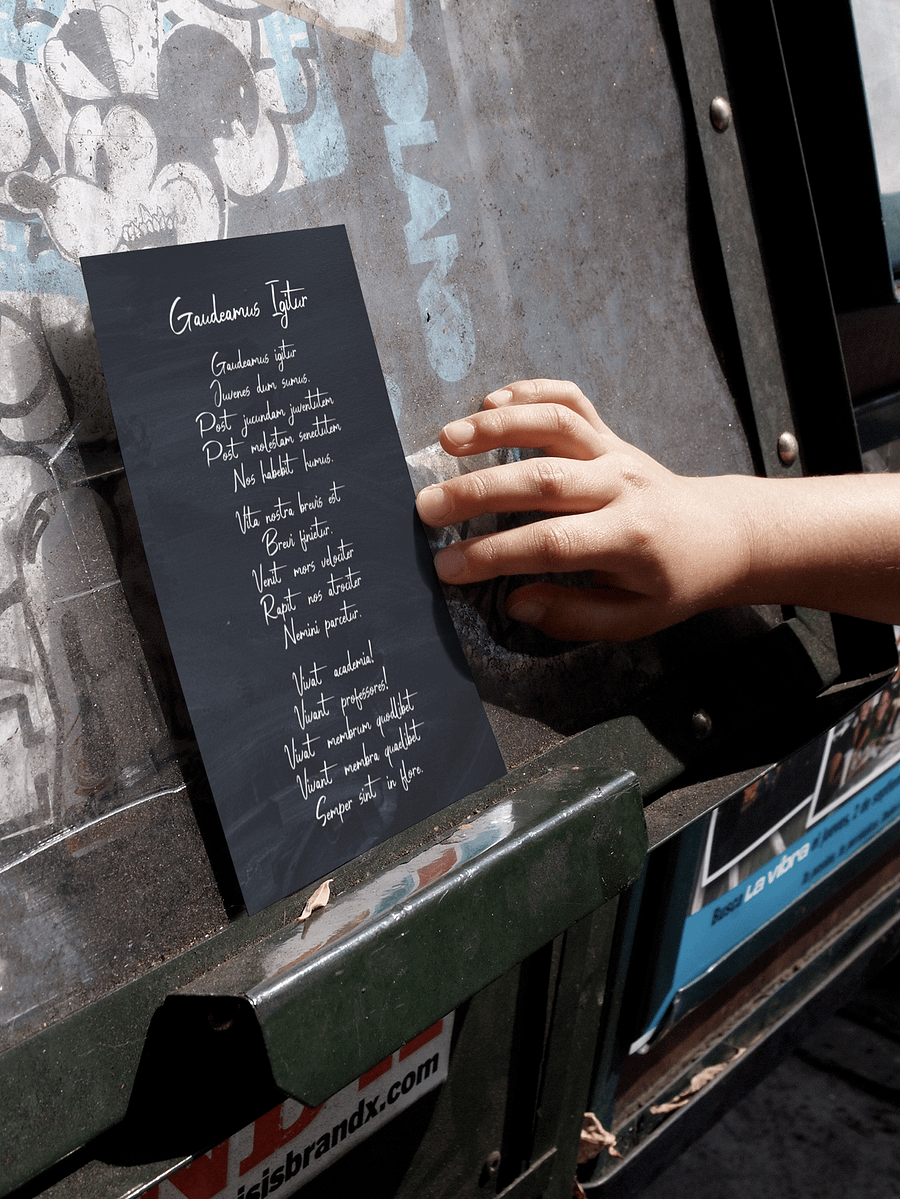 Gaudeamus Igitur
Gaudeamus igitur
Juvenes dum sumus.
Post jucundam juventutem
Post molestam senectutem
Nos habebit humus.
Vita nostra brevis est
Brevi finietur.
Venit mors velociter
Rapit nos atrociter
Nemini parcetur.
Vivat academia!
Vivant professores!
Vivat membrum quodlibet
Vivant membra quaelibet
Semper sint in flore.
Busca La vibra el jueves, 2 de
isisbrandx.com